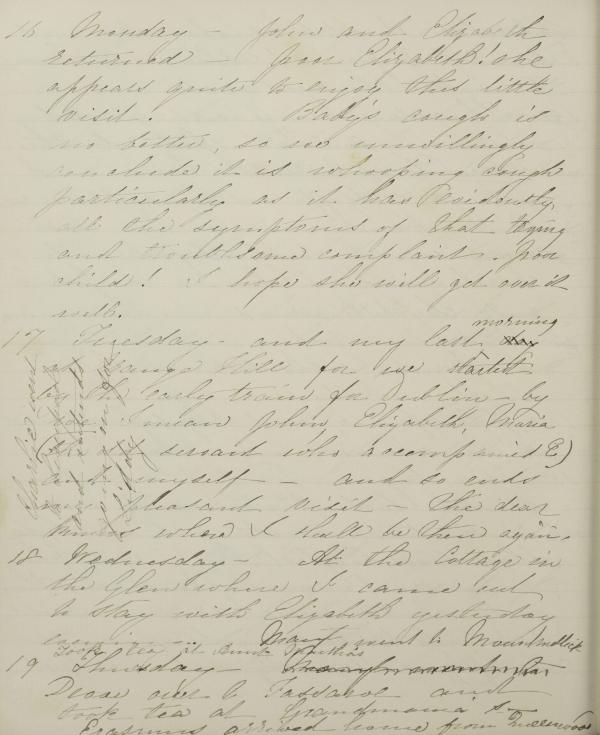 16 Monday - John and Elizabeth
returned - poor Elizabeth! she
appears quite to enjoy this little
visit. Baby's cough is
no better, so we unwillingly
conclude it is whooping cough
particularly as it has evidently
all the symptoms of that trying
and troublesome complaint. poor
child! I hope she will get over it
well.
17 Tuesday - and my last morning
at Hill for we started
by the early train for Dublin - by
we I mean John, Elizabeth, Maria
(the servant who accompanied E)
and myself - and so ends
my pleasant visit - the dear
knows when I shall be there again.
18 Wednesday - At the Cottage in
the Glen where I came out
to stay with Elizabeth yesterday
evening - Mary went to Mount
Took tea at Aunt
19 Thursday -
Drove over to Fassaroe and
took tea at Grandmama's -
Erasmus arrived home from
Charlie